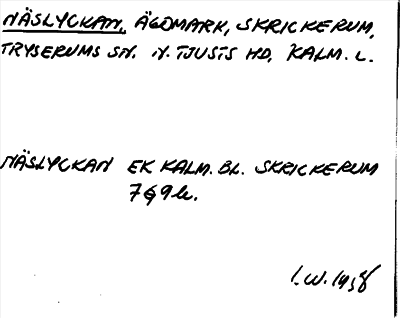 NÄSLYCKAN, ÄGOMARK, SKRICKERUM,
TRYSERUMS SN. N. TJUSTS HD, KALM. L.
NÄSLYCKAN EK KALM. BL. SKRICKERUM
7G9b.
I.W. 1938